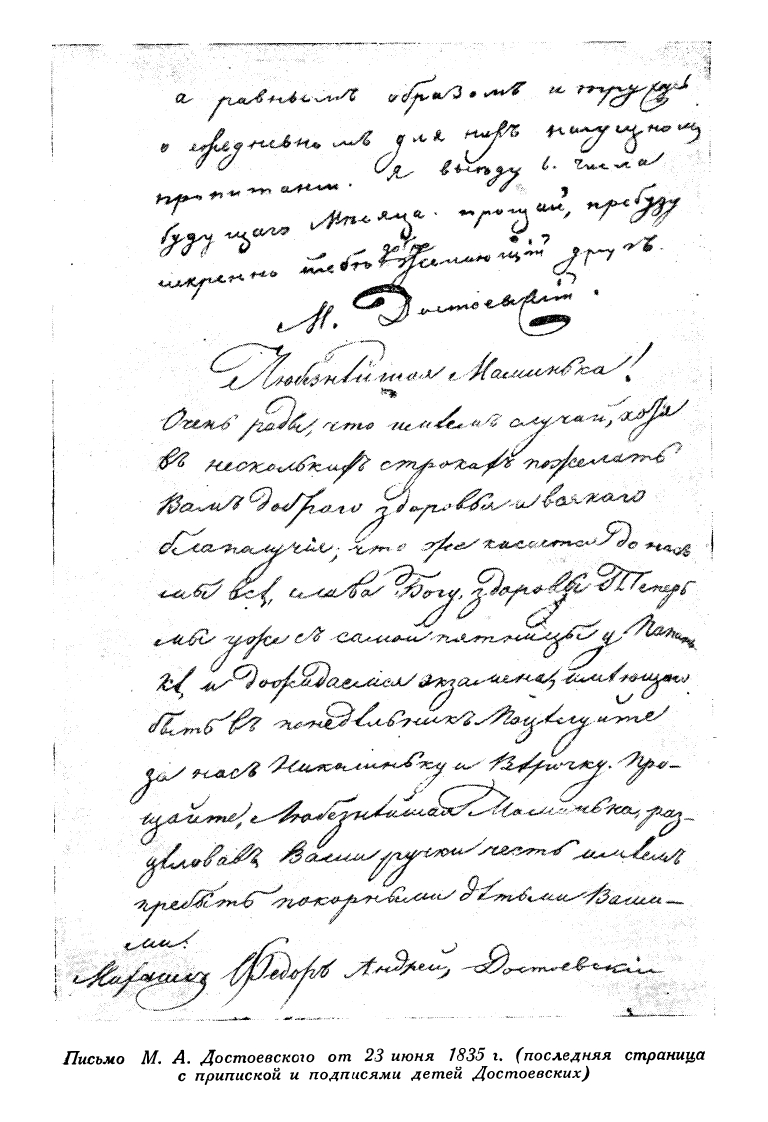 а равнымъ образомъ и
о ежедневномъ для насъ насущномъ
пропитаніи. Я выѣду 6. числа
будущаго Мѣсяца. прощай, пребуду
искренно тебѣ добра желающій другъ.
М. Достоевскій.
Любезнѣйшая Маминька!
Очень рады, что имѣемъ случай, хотя
въ несколькихъ строкахъ пожелать
Вамъ доброго здоровья и всякаго
благополучія; что же касается до насъ
мы всѣ, слава Богу, здоровы Теперь
мы уже съ самой пятницы у Папинь
кѣ, и дожидаемся экзамена, имѣющаго
быть въ понедѣльникъ Поцѣлуйте
за насъ Николиньку и Вѣрочку. Про-
щайте, Любезнѣйшая Маминька, раз-
цѣловавъ Ваши ручки честь имѣемъ
пребыть покорными дѣтьми Ваши-
ми.
Михаилъ Ѳедоръ Андрей, Достоевскіи
Письмо М. А. Достоевского от 23 июня 1835 г. (последняя страница
с припиской и подписями детей Достоевских)